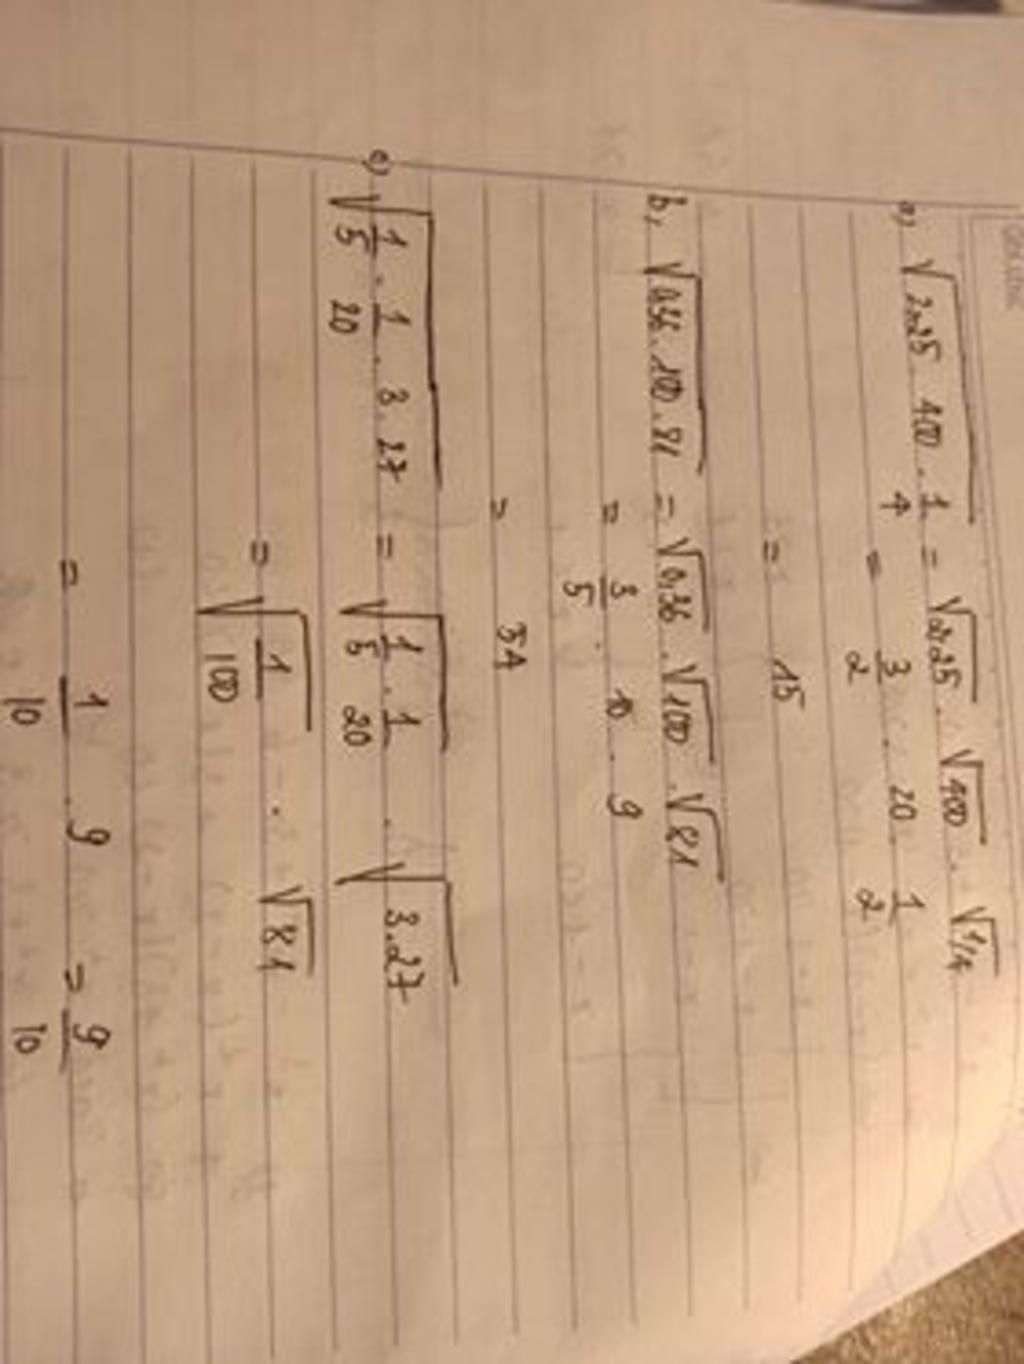 a, √(2,25 . 400 . 1/4) = √2,25 . √400 . √1/4
= 3/2 . 20 . 1/2
= 15
b, √(0,36 . 100 . 81) = √0,36 . √100 . √81
= 3/5 . 10 . 9
= 54
c) √(1/5 . 1/20 . 3 . 27) = √(1/5 . 1/20) . √(3.27)
= √(1/100) . √81
= 1/10 . 9 = 9/10